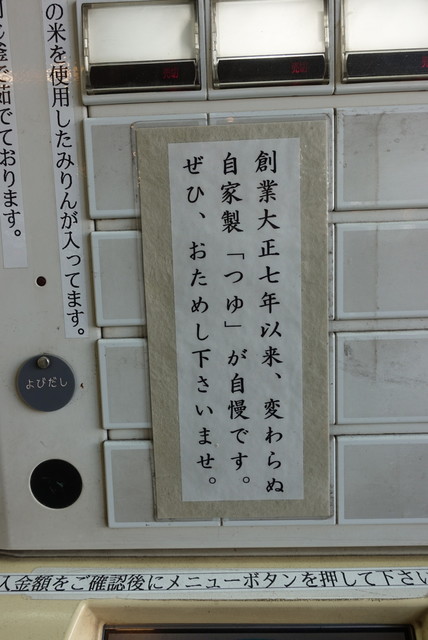 創業大正七年以来、変わらぬ
自家製「つゆ」が自慢です。
ぜひ、おためし下さいませ。
の米を使用したみりんが入ってます。
釜で茹でております。
よびだし
入金額をご確認後にメニューボタンを押して下さい